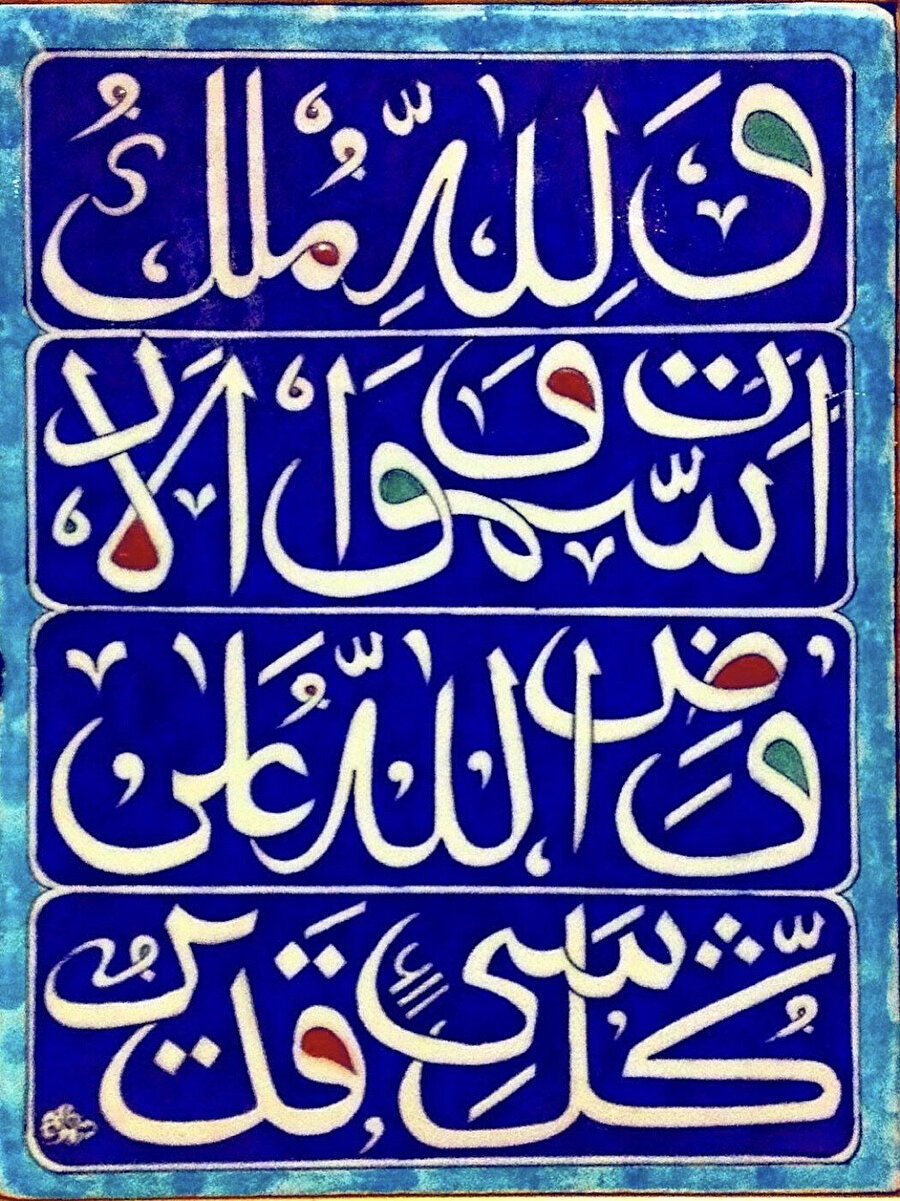 وَلِلّٰهِ مُلْكُ
السَّمٰوَاتِ وَالْاَرْ
ضِ وَاللّٰهُ عَلٰى
كُلِّ شَيْءٍ قَدِيرٌ